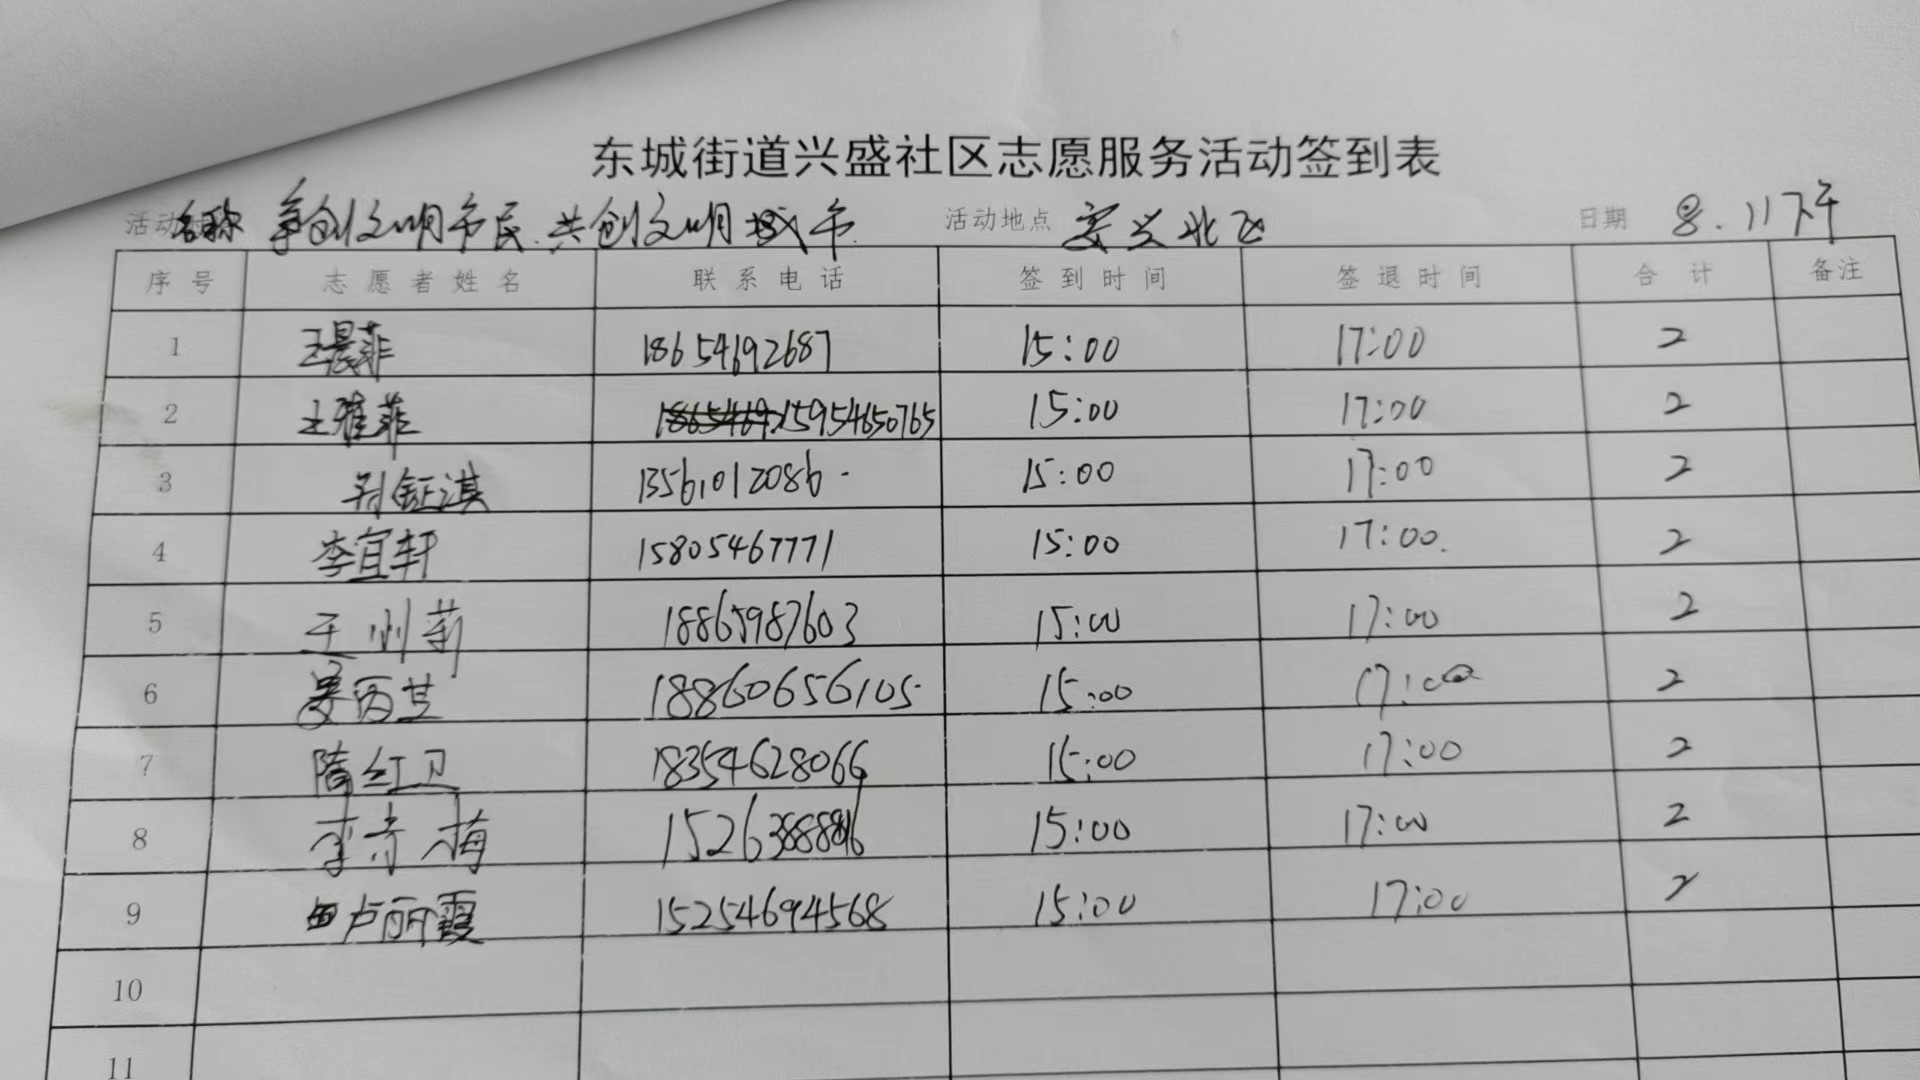 东城街道兴盛社区志愿服务活动签到表
活动名称 争创文明市民.共创文明城市 活动地点 安兴北区 日期 8.11下午
序号 志愿者姓名 联系电话 签到时间 签退时间 合计 备注
1 王晨菲 18654692687 15:00 17:00 2
2 王雅菲 15954650765 15:00 17:00 2
3 钲淇 13561012086 15:00 17:00 2
4 李宜轩 15805467771 15:00 17:00 2
5 王 莉 18865987603 15:00 17:00 2
6 18860656105 15:00 17:00 2
7 隋红卫 18354628066 15:00 17:00 2
8 李 梅 15:00 17:00 2
9 卢丽霞 15254694568 15:00 17:00 2
10
11